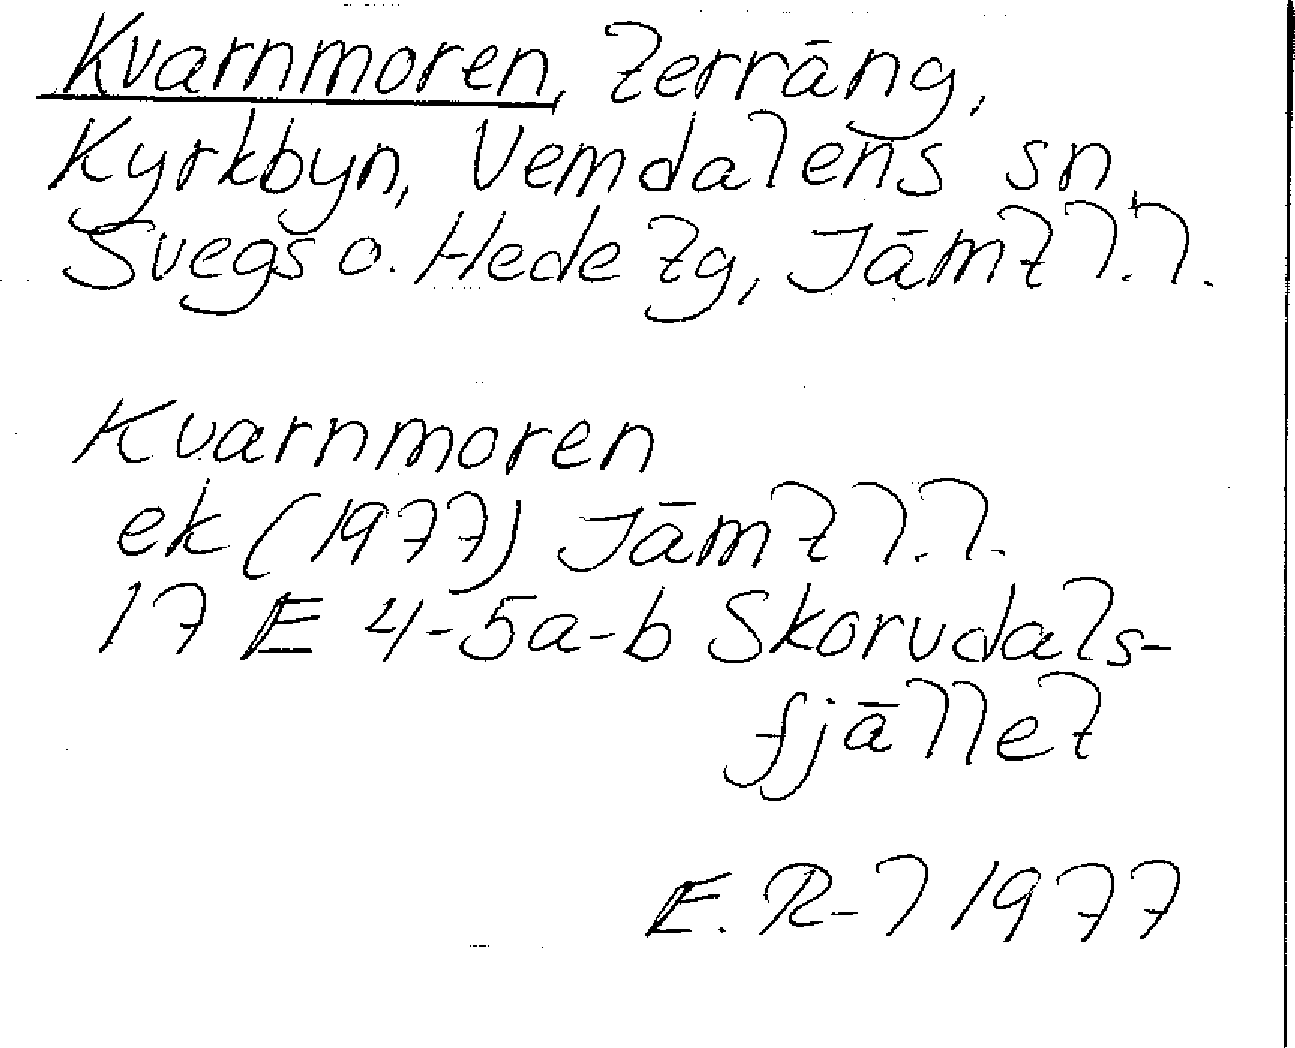 Kvarnmoren, terräng,
Kyrkbyn, Vemdalens sn,
Svegs o. Hede tg, Jämtl. l.
Kvarnmoren
ek (1977) Jämtl. l.
17 E 4-5a-b Skorvdals-
fjället
E. R-l 1977